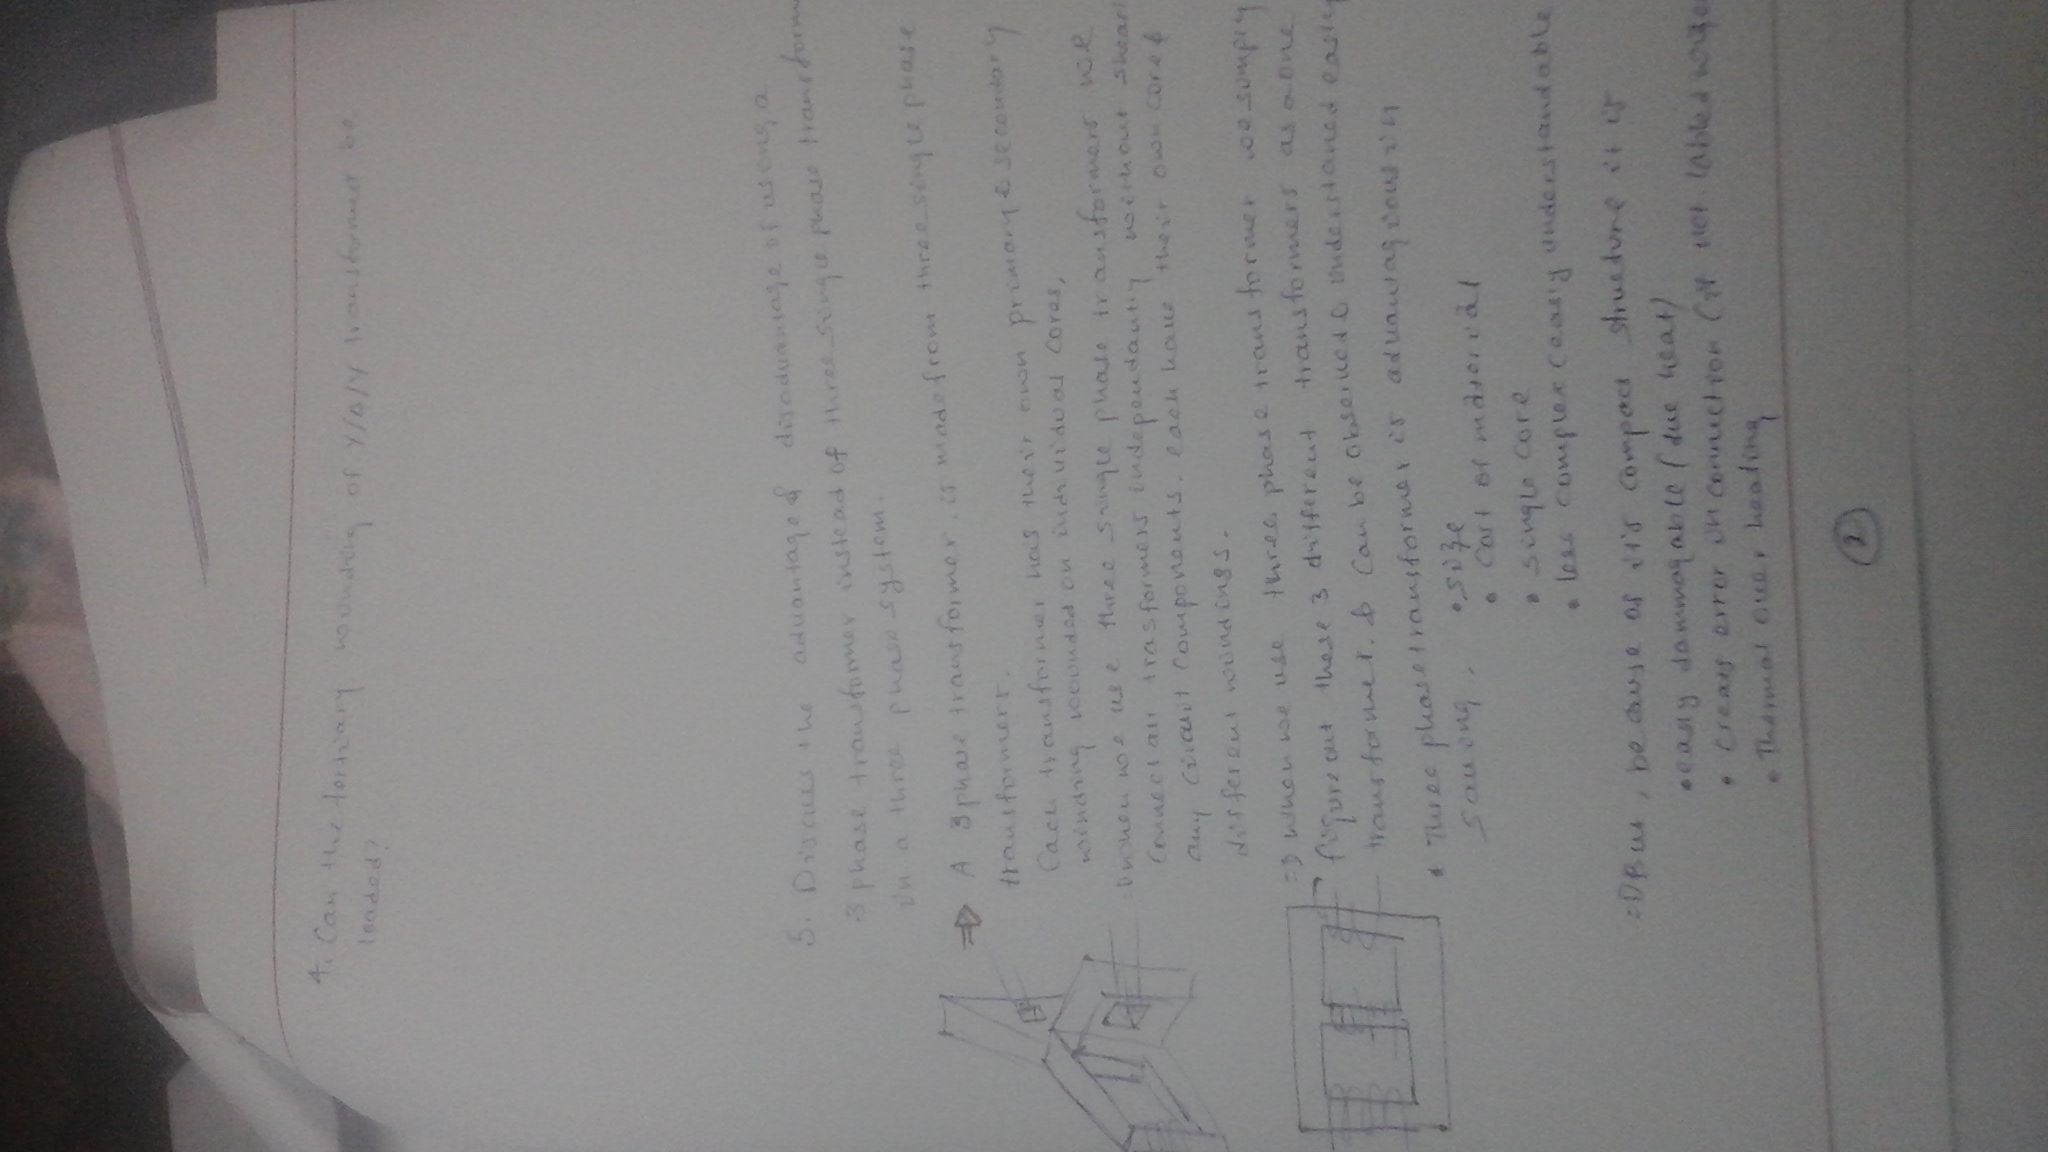 4. Can the tertiary winding of Y/Δ/Y transformer be
loaded?
5. Discuss the advantage & disadvantage of using a
3 phase transformer instead of three single phase transform
in a three phase system.
⇒ A 3 phase transformer is made from three single phase
transformers.
Each transformer has their own primary & secondary
winding wounded on individual cores,
⇒ when we use three single phase transformers we
connect all trasformers independantly without sheari
any circuit components. each have their own core &
different windings.
⇒ when we use three phase transformer we simply
figure out these 3 different transformers as a one
transformer. & can be observed & understaned easly
* Three phase transformer is advantagious in
saving,
• size
• cost of material
• single core
• less complex (easly understandable
⇒ But, because of it's compact structure it is
• easly dammagable (due heat)
• creats error in connection (if not labled
• Thermal over heating
2